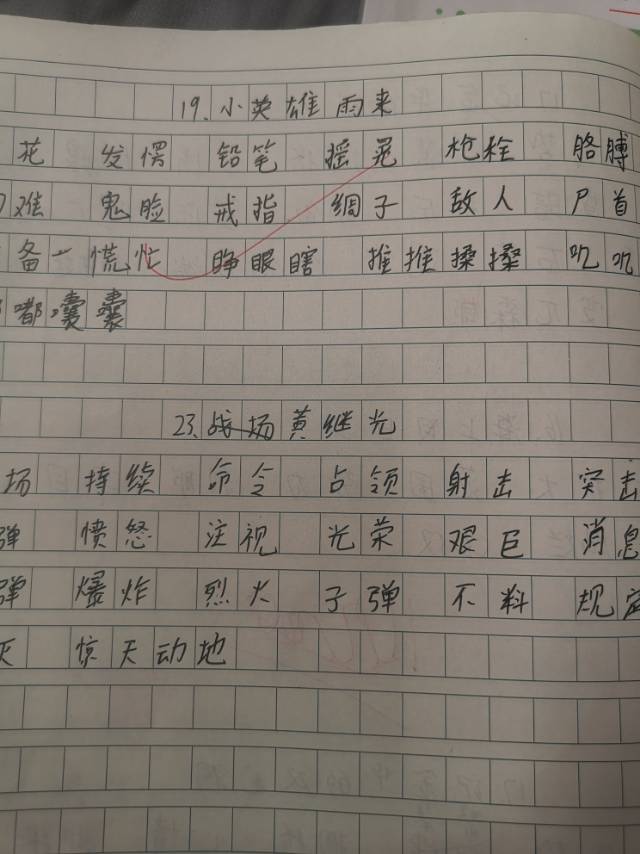 19.小英雄雨来
花 发愣 铅笔 摇晃 枪栓 胳膊
难 鬼脸 戒指 绸子 敌人 尸首
备一慌忙 睁眼瞎 推推搡搡 叽叽
嘟囔囊
23.战场黄继光
场 持续 命令 占领 射击 突击
弹 愤怒 注视 光荣 艰巨 消息
弹 爆炸 烈火 子弹 不料 规定
灭 惊天动地